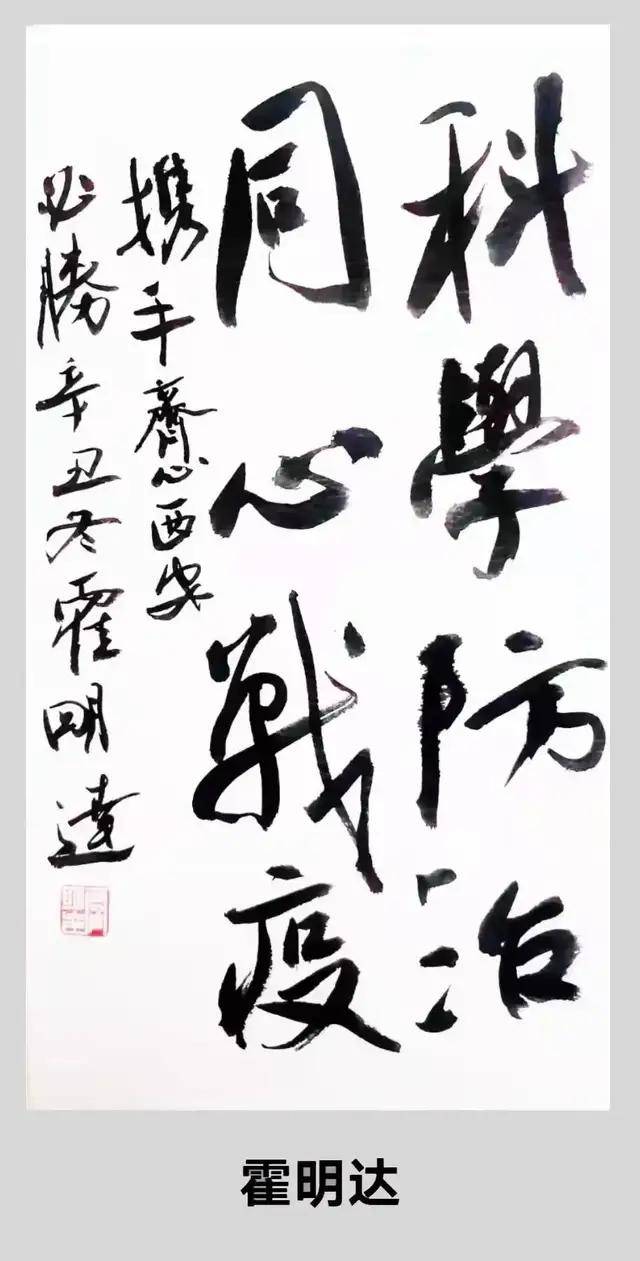 科學防治
同心戰疫
携手齊心西安
必勝辛丑冬霍明達
霍明达